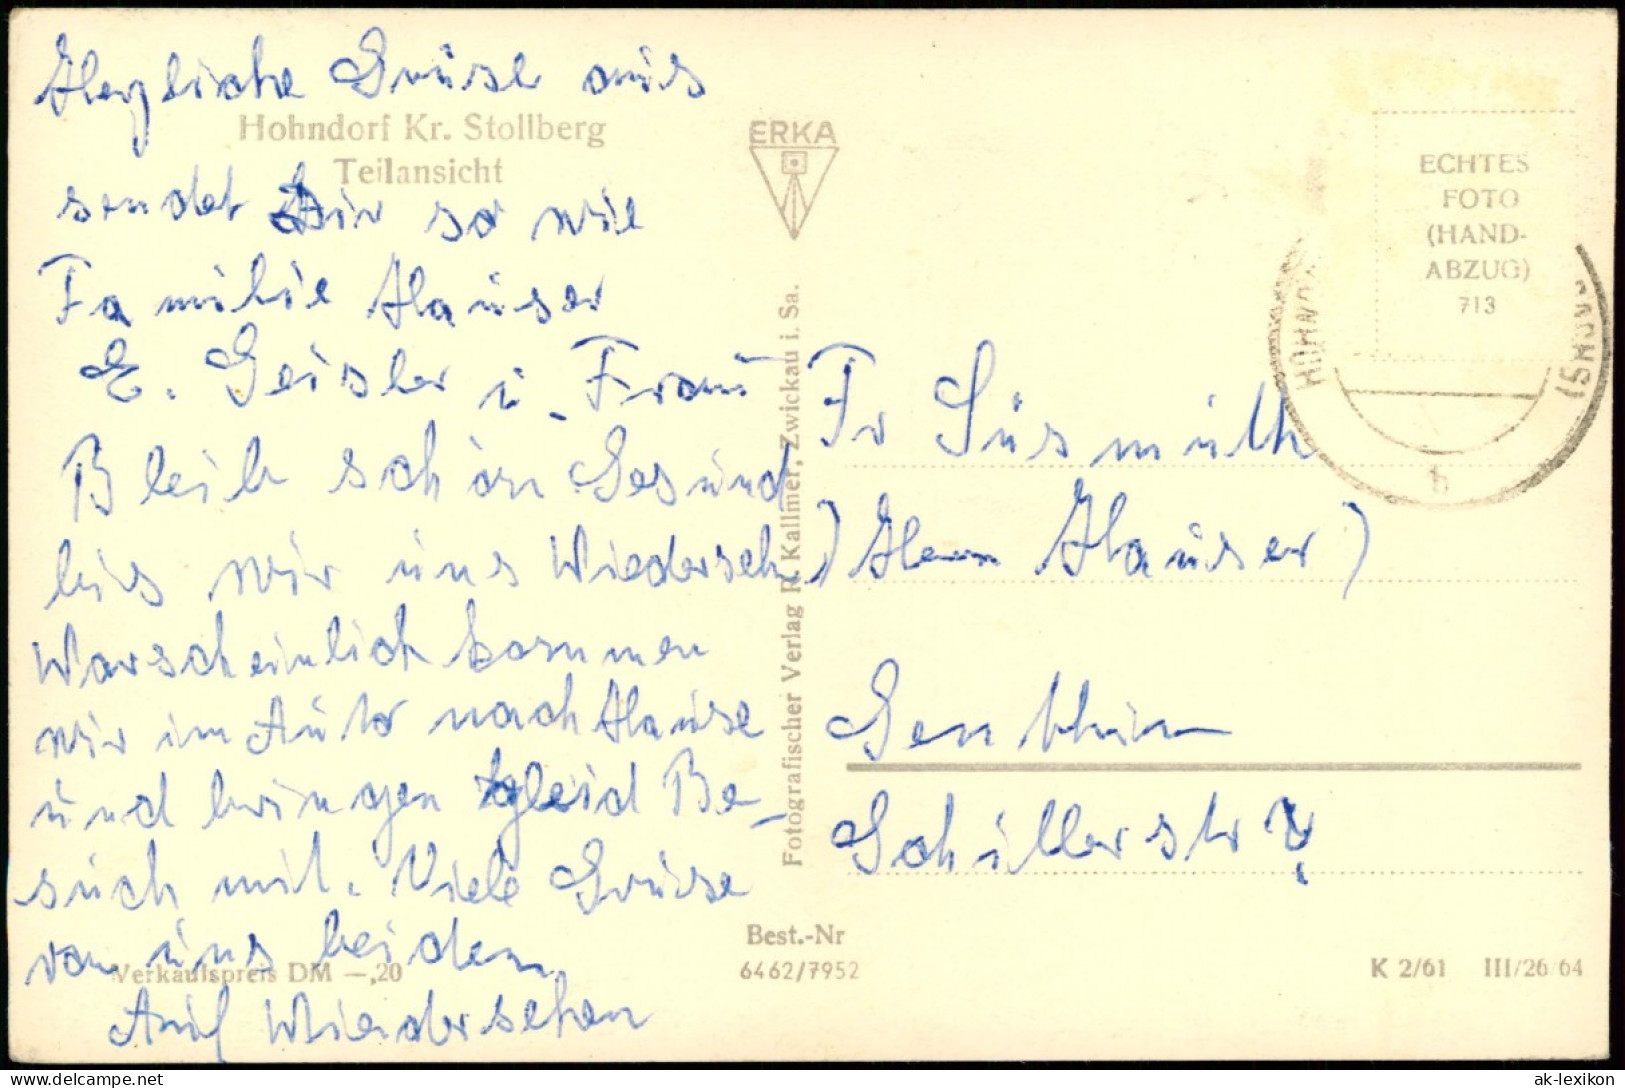 Herzliche Grüse aus
Hohndorf Kr. Stollberg
Teilansicht
sendet Dir so wie
Familie Hauser
E. Geisler u. Frau
Bleib schön Gesund
bis wir uns Wiederseh
Warscheinlich kommen
wir im Auto nach Hause
und bringen gleid Be-
such mit. Viele Grüse
von uns beiden
Auf Wiedersehen
Verkaufspreis DM —,20
ERKA
Fotografischer Verlag R. Kallmer, Zwickau i. Sa.
Best.-Nr
6462/7952
ECHTES
FOTO
(HAND-
ABZUG)
713
HOHNDO
b
Fr Süsmuth
(Herrn Hauser)
Genthin
Schillerstr
K 2/61 III/26/64
ak-lexikon.com
ak-lexikon